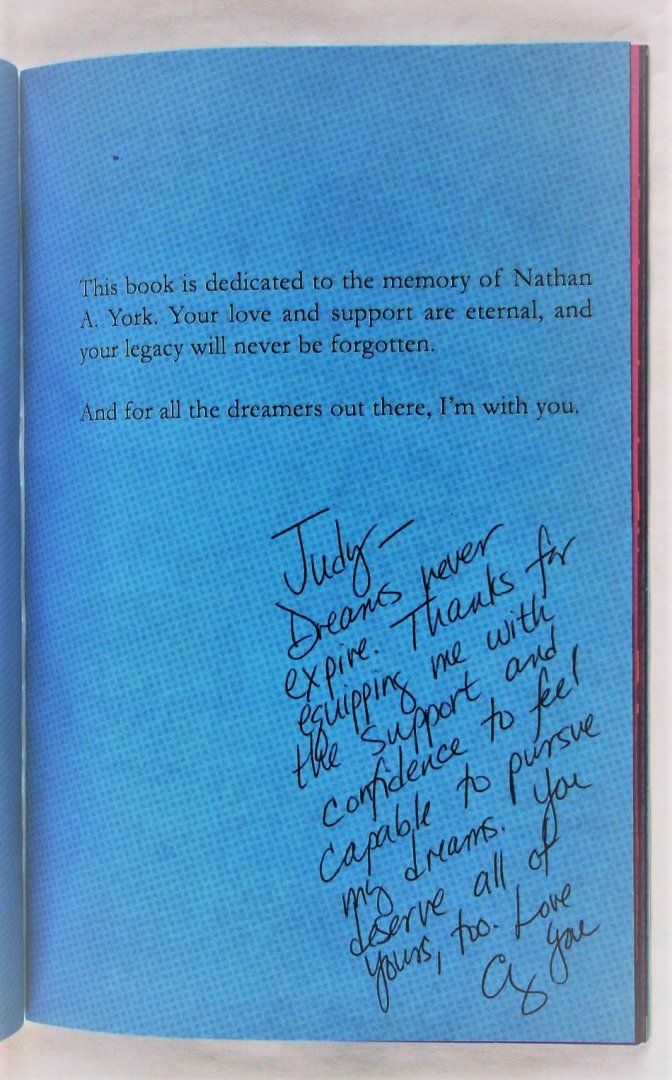 This book is dedicated to the memory of Nathan
A. York. Your love and support are eternal, and
your legacy will never be forgotten.
And for all the dreamers out there, I'm with you.
Judy—
Dreams never
expire. Thanks for
equipping me with
the support and
confidence to feel
capable to pursue
my dreams. You
deserve all of
yours, too. Love
you